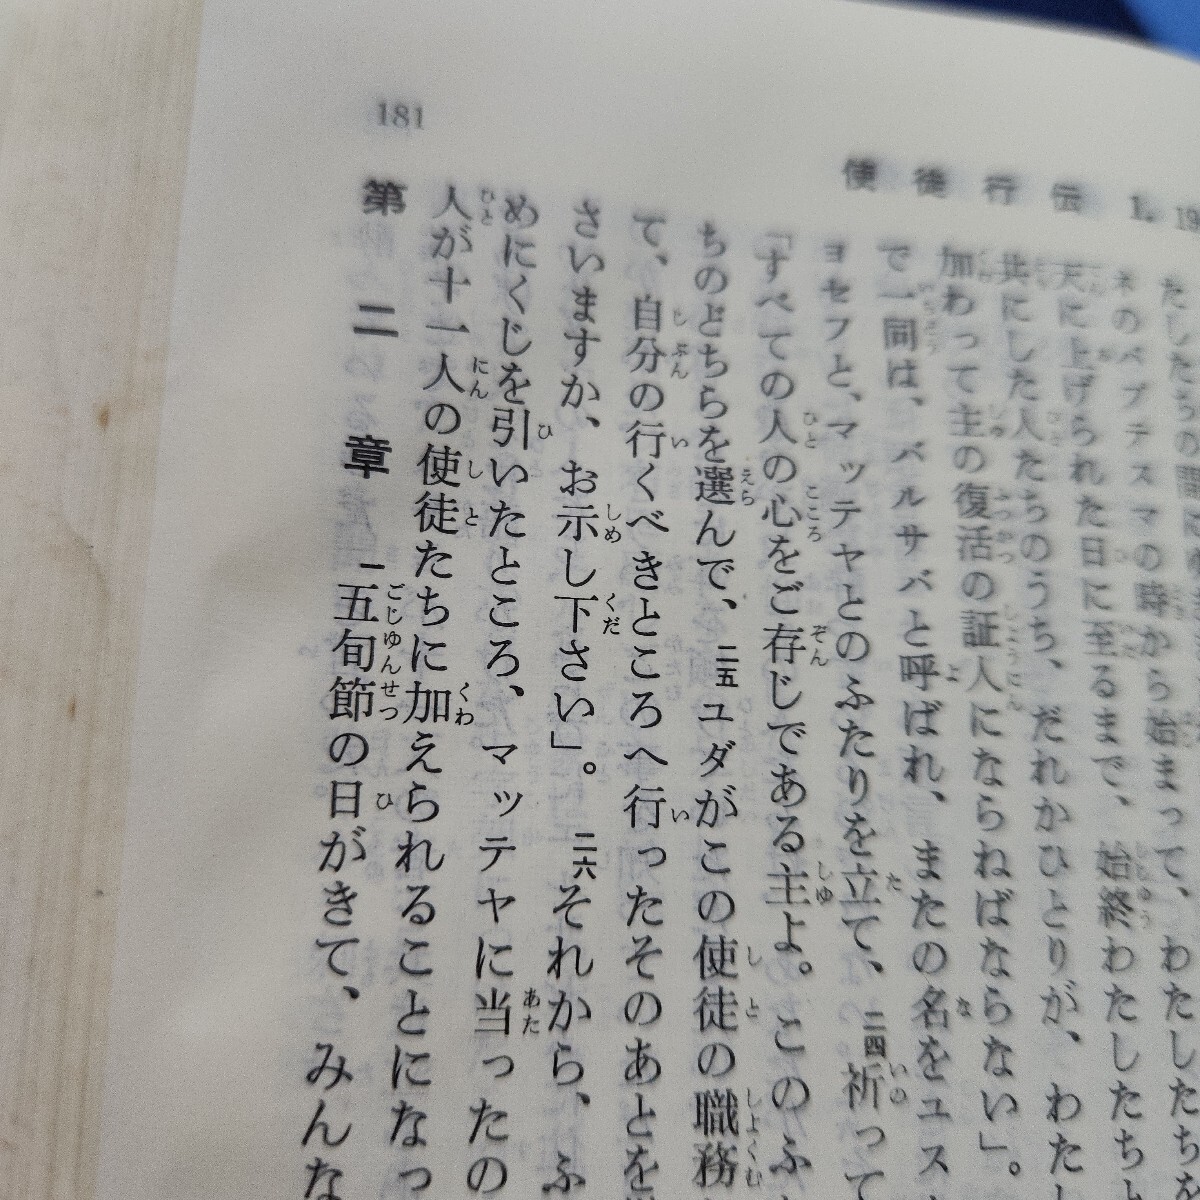 181
使徒行伝 1.
たしたちの間に
ネのバプテスマの時から始まって、わたしたちを
天に上げられた日に至るまで、始終わたしたちと
共にした人たちのうち、だれかひとりが、わた
加わって主の復活の証人にならねばならない」。
で一同は、バルサバと呼ばれ、またの名をユス
ヨセフと、マッテヤとのふたりを立て、二四祈って
「すべての人の心をご存じである主よ。このふ
ちのどちらを選んで、二五ユダがこの使徒の職務
て、自分の行くべきところへ行ったそのあとを
さいますか、お示し下さい」。二六それから、ふ
めにくじを引いたところ、マッテヤに当ったの
人が十一人の使徒たちに加えられることになっ
第二章 一五旬節の日がきて、みんな